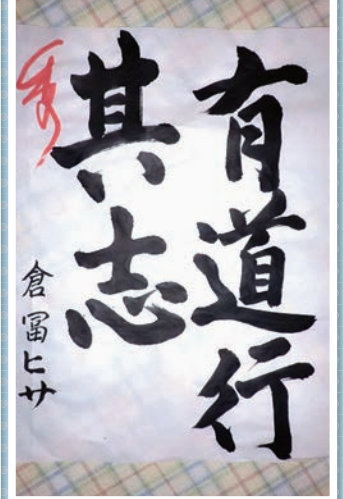 有道行
其志
倉冨ヒサ
秀